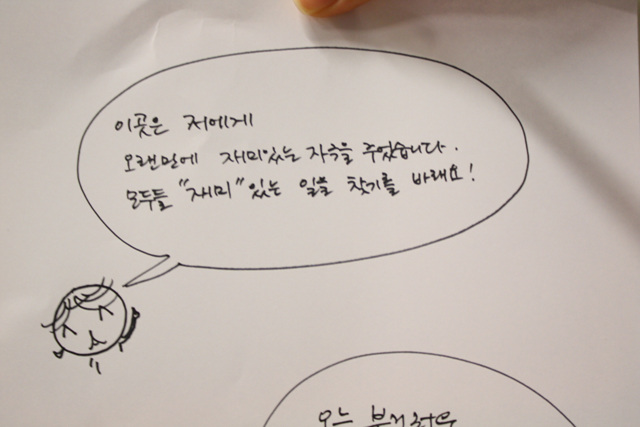 이곳은 저에게
오랜만에 재미있는 자극을 주었습니다.
모두들 "재미"있는 일을 찾기를 바래요!
오늘